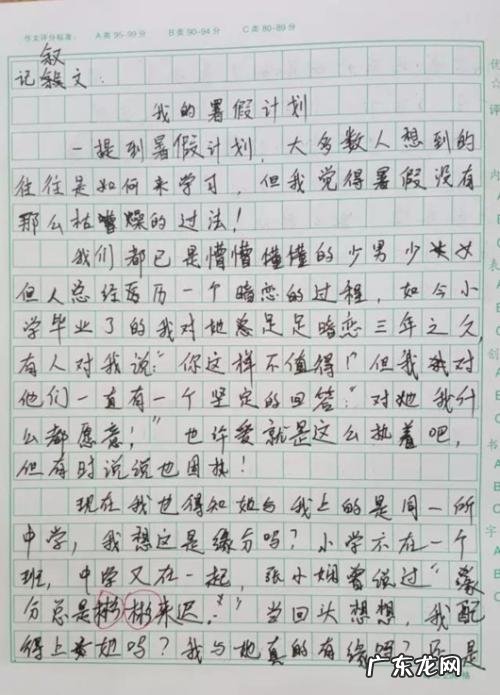 作文评分标准： A类95-99分 B类90-94分 C类80-89分
叙
记叙文：
我的暑假计划
一提到暑假计划，大多数人想到的
往往是如何来学习，但我觉得暑假没有
那么枯燥的过法！
我们都已是懵懵懂懂的少男少女
但人总经历一个暗恋的过程，如今小
学毕业了的我对她足足暗恋三年之久，
有人对我说：“你这样不值得！”但我对
他们一直有一个坚定的回答：“对她我什
么都愿意！”也许爱就是这么执着吧，
但有时说说也固执！
现在我也得知她与我上的是同一所
中学，我想这是缘分吗？小学不在一个
班，中学又在一起，张小娴曾说过“缘
分总是彬彬来迟。”当回头想想，我配
得上她吗？我与她真的有缘吗？还是
优
评
内
表
创
A
B
C
字
A
B
稿
头条 @广东龙网
广东龙网